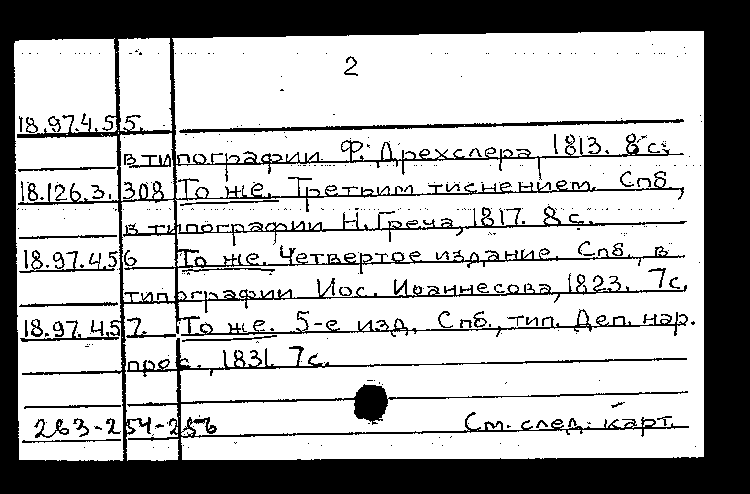 2
18.97.4.55.
в типографии Ф. Дрехслера, 1813. 8 с.
18.126.3.308 То же. Третьим тиснением. Спб.,
в типографии Н. Греча, 1817. 8 с.
18.97.4.56 То же. Четвертое издание. Спб., в
типографии Иос. Иоаннесова, 1823. 7 с.
18.97.4.57. То же. 5-е изд. Спб., тип. Деп. нар.
прос., 1831. 7 с.
263-254-256 См. след. карт.